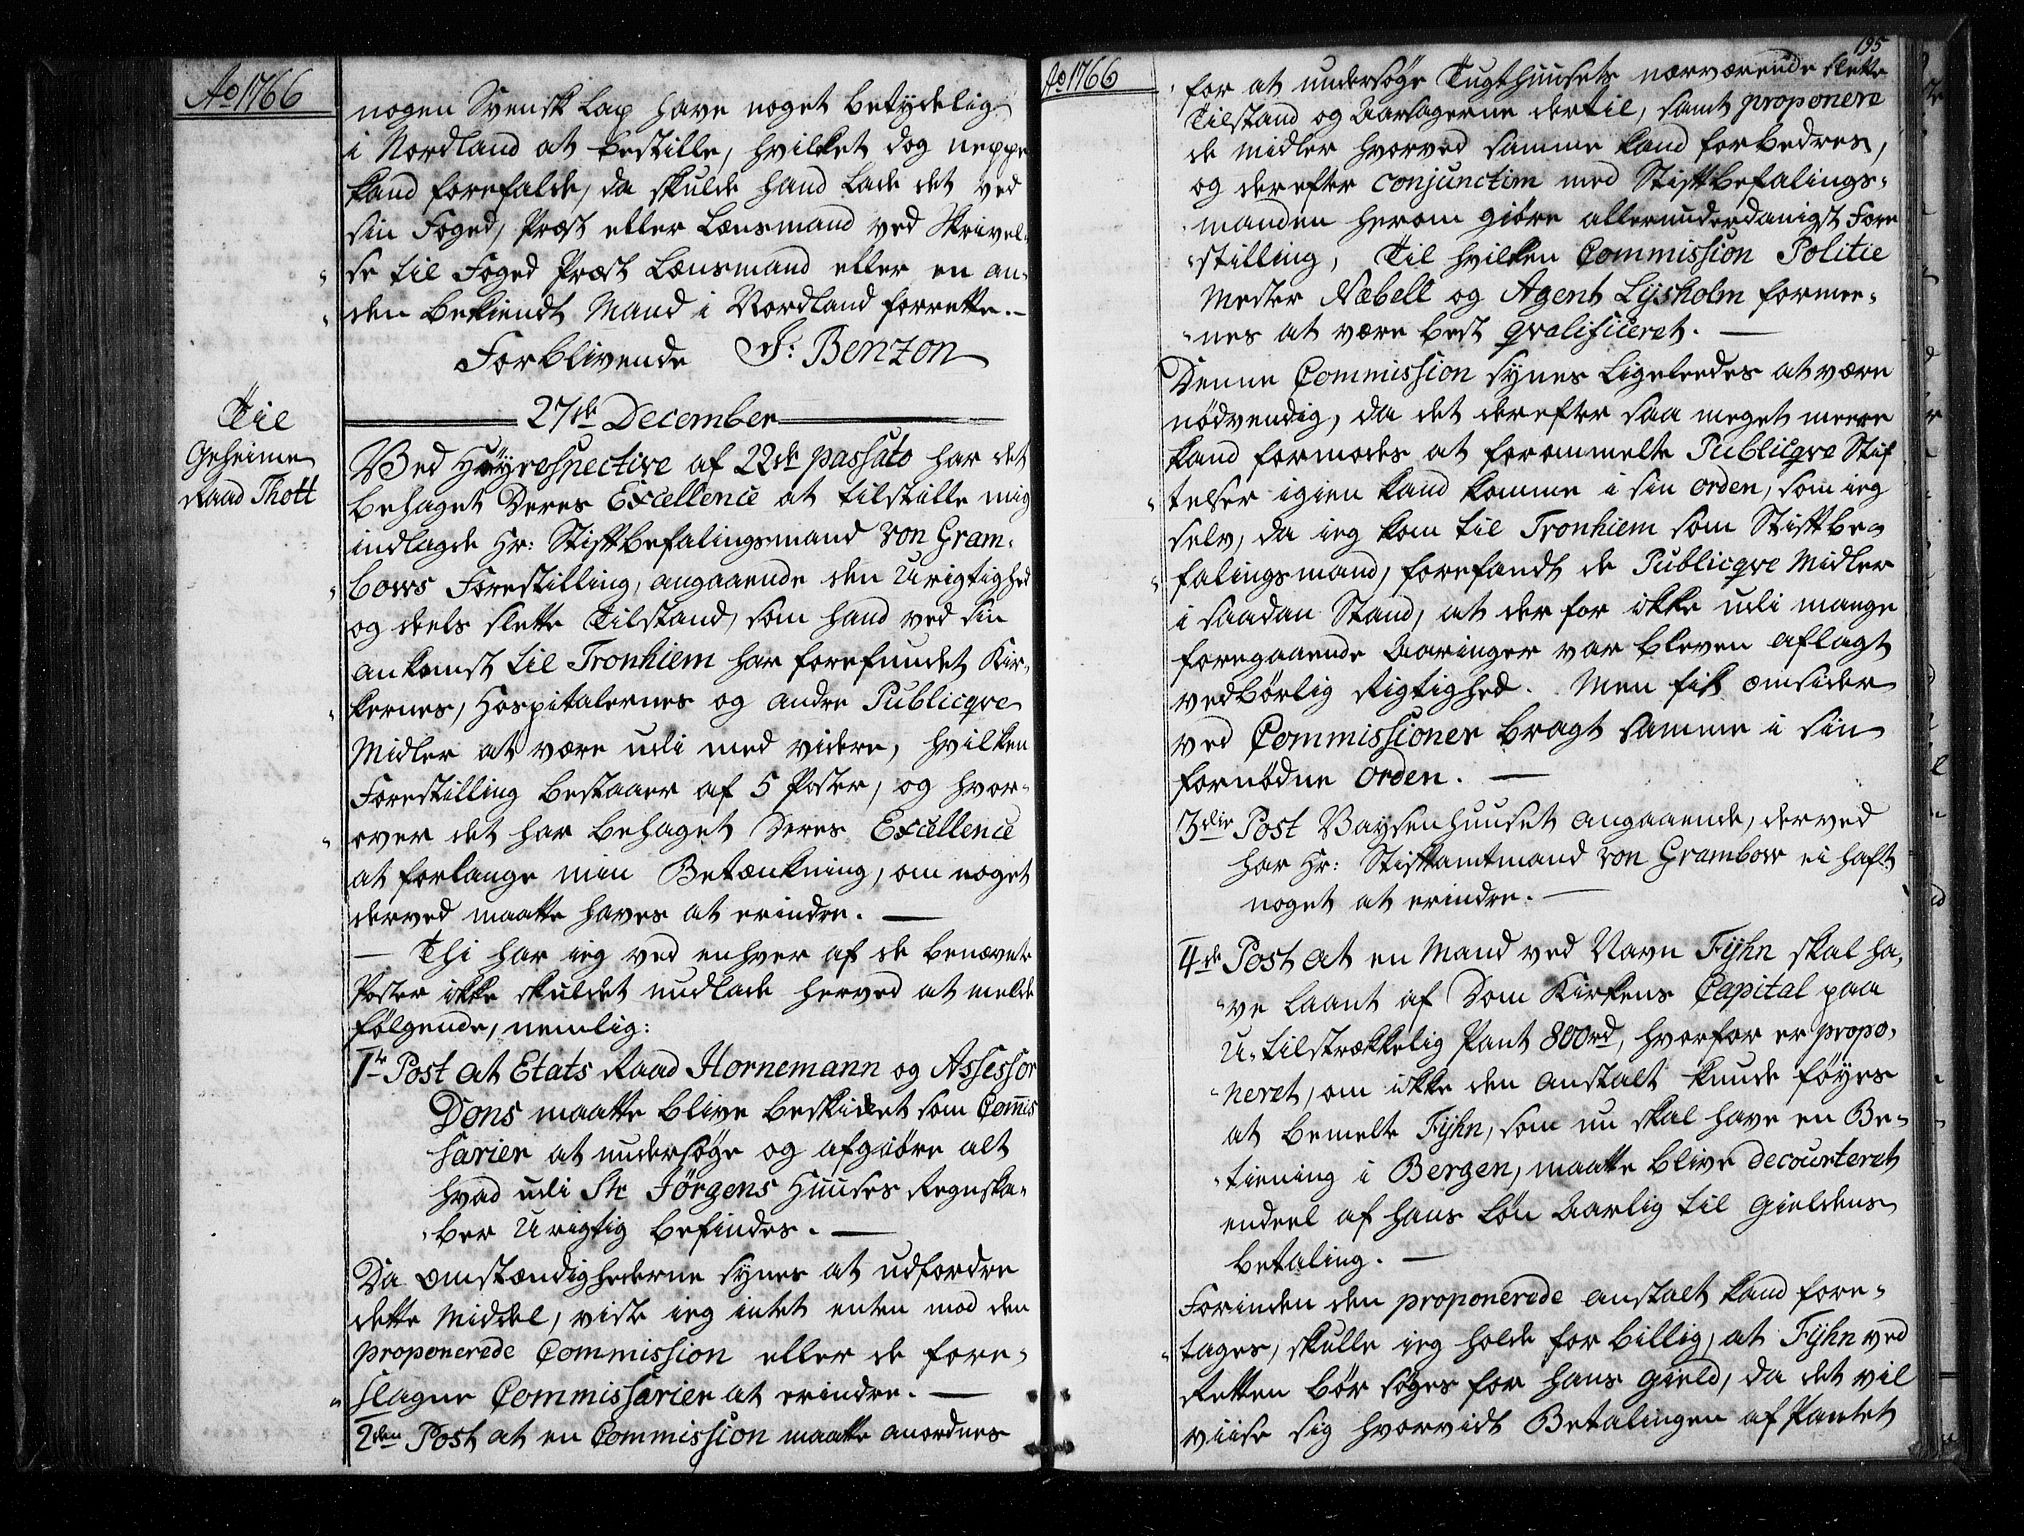 Ao 1766
nogen Svensk Lap have noget betydelig
i Nordland at bestille, hvilket dog neppe
kand forefalde, da skulde hand lade det ved
sin Foged, Præst eller Lænsmand ved Skrivel-
se til Foged Præst Lænsmand eller en an-
den bekiendt Mand i Nordland forrette.-
Forblivende J: Benzon
27de December
Til
Geheime
Raad Thott
Ved Høyrespective af 22de passato har det
behaget Deres Excellence at tilstille mig
indlagde Hr: Stiftbefalingsmand von Gram-
bows Forestilling, angaaende den Urigtighed
og deels slette Tilstand, som hand ved sin
ankomst til Tronhiem har forefundet Kir-
kernes, Hospitalernes og andre Publicqve
Midler at være udi med videre, hvilken
Forestilling bestaaer af 5 Poster, og hvor-
over det har behaget Deres Excellence
at forlange min Betænkning, om noget
derved maatte haves at erindre. —
— Thi har ieg ved enhver af de benævnte
Poster ikke skuldet undlade herved at melde
følgende, nemlig:
1te Post at Etats Raad Hornemann og Assessor
Dons maatte blive beskicket som Com̅is
sarier at undersøge og afgiøre alt
hvad udi St: Jörgens Huuses Regnska-
ber Urigtig befindes. —
Da omstændighederne synes at udfordre
dette Middel, viste ieg intet enten mod den
proponerede Commission eller de fore-
slagne Commissarier at erindre. —
2den Post at en Commission maatte anordnes
195
Ao 1766
for at undersøge Tugthuusets nærværende slette
Tilstand og Aarsagerne dertil, samt proponere
de Midler hvorved samme kand forbedres,
og derefter conjunctim med Stiftbefalings-
manden herom giøre allerunderdanigst Fore
stilling, Til hvilken Commission Politie
Mester Næbell og Agent Lysholm formee-
nes at være best qvalificeret. —
Denne Commission synes ligeleedes at være
nödvendig, da det derefter saa meget meere
kand formodes at forommelte Publicqve Stif
telser igien kand komme i sin orden, som ieg
selv, da ieg kom til Tronhiem som Stiftbe-
falingsmand, forefandt de Publicqve Midler
i saadan Stand, at der for ikke udi mange
foregaaende Aaringer var bleven aflagt
vedbörlig Rigtighed. Men fik omsider
ved Commissioner bragt samme i sin
fornödne orden. —
3die Post Vaysenhuuset angaaende, derved
har Hr: Stiftamtmand von Grambow ei haft
noget at erindre. —
4de Post at en Mand ved Navn Fyhn skal ha-
ve laant af Dom Kirkens Capital paa
U-tilstrækkelig Pant 800rd, hvorfor er propo-
neret, om ikke den anstalt kunde föyes
at bemelte Fyhn, som nu skal have en Be-
tiening i Bergen, maatte blive decourteret
endeel af hans Lön Aarlig til Gieldens
betaling. —
Forinden den proponerede anstalt kand fore-
tages, skulle ieg holde for billig, at Fyhn ved
Retten bör söges for hans Gield, da det vil
viise sig hvorvidt Betalingen af Pantet